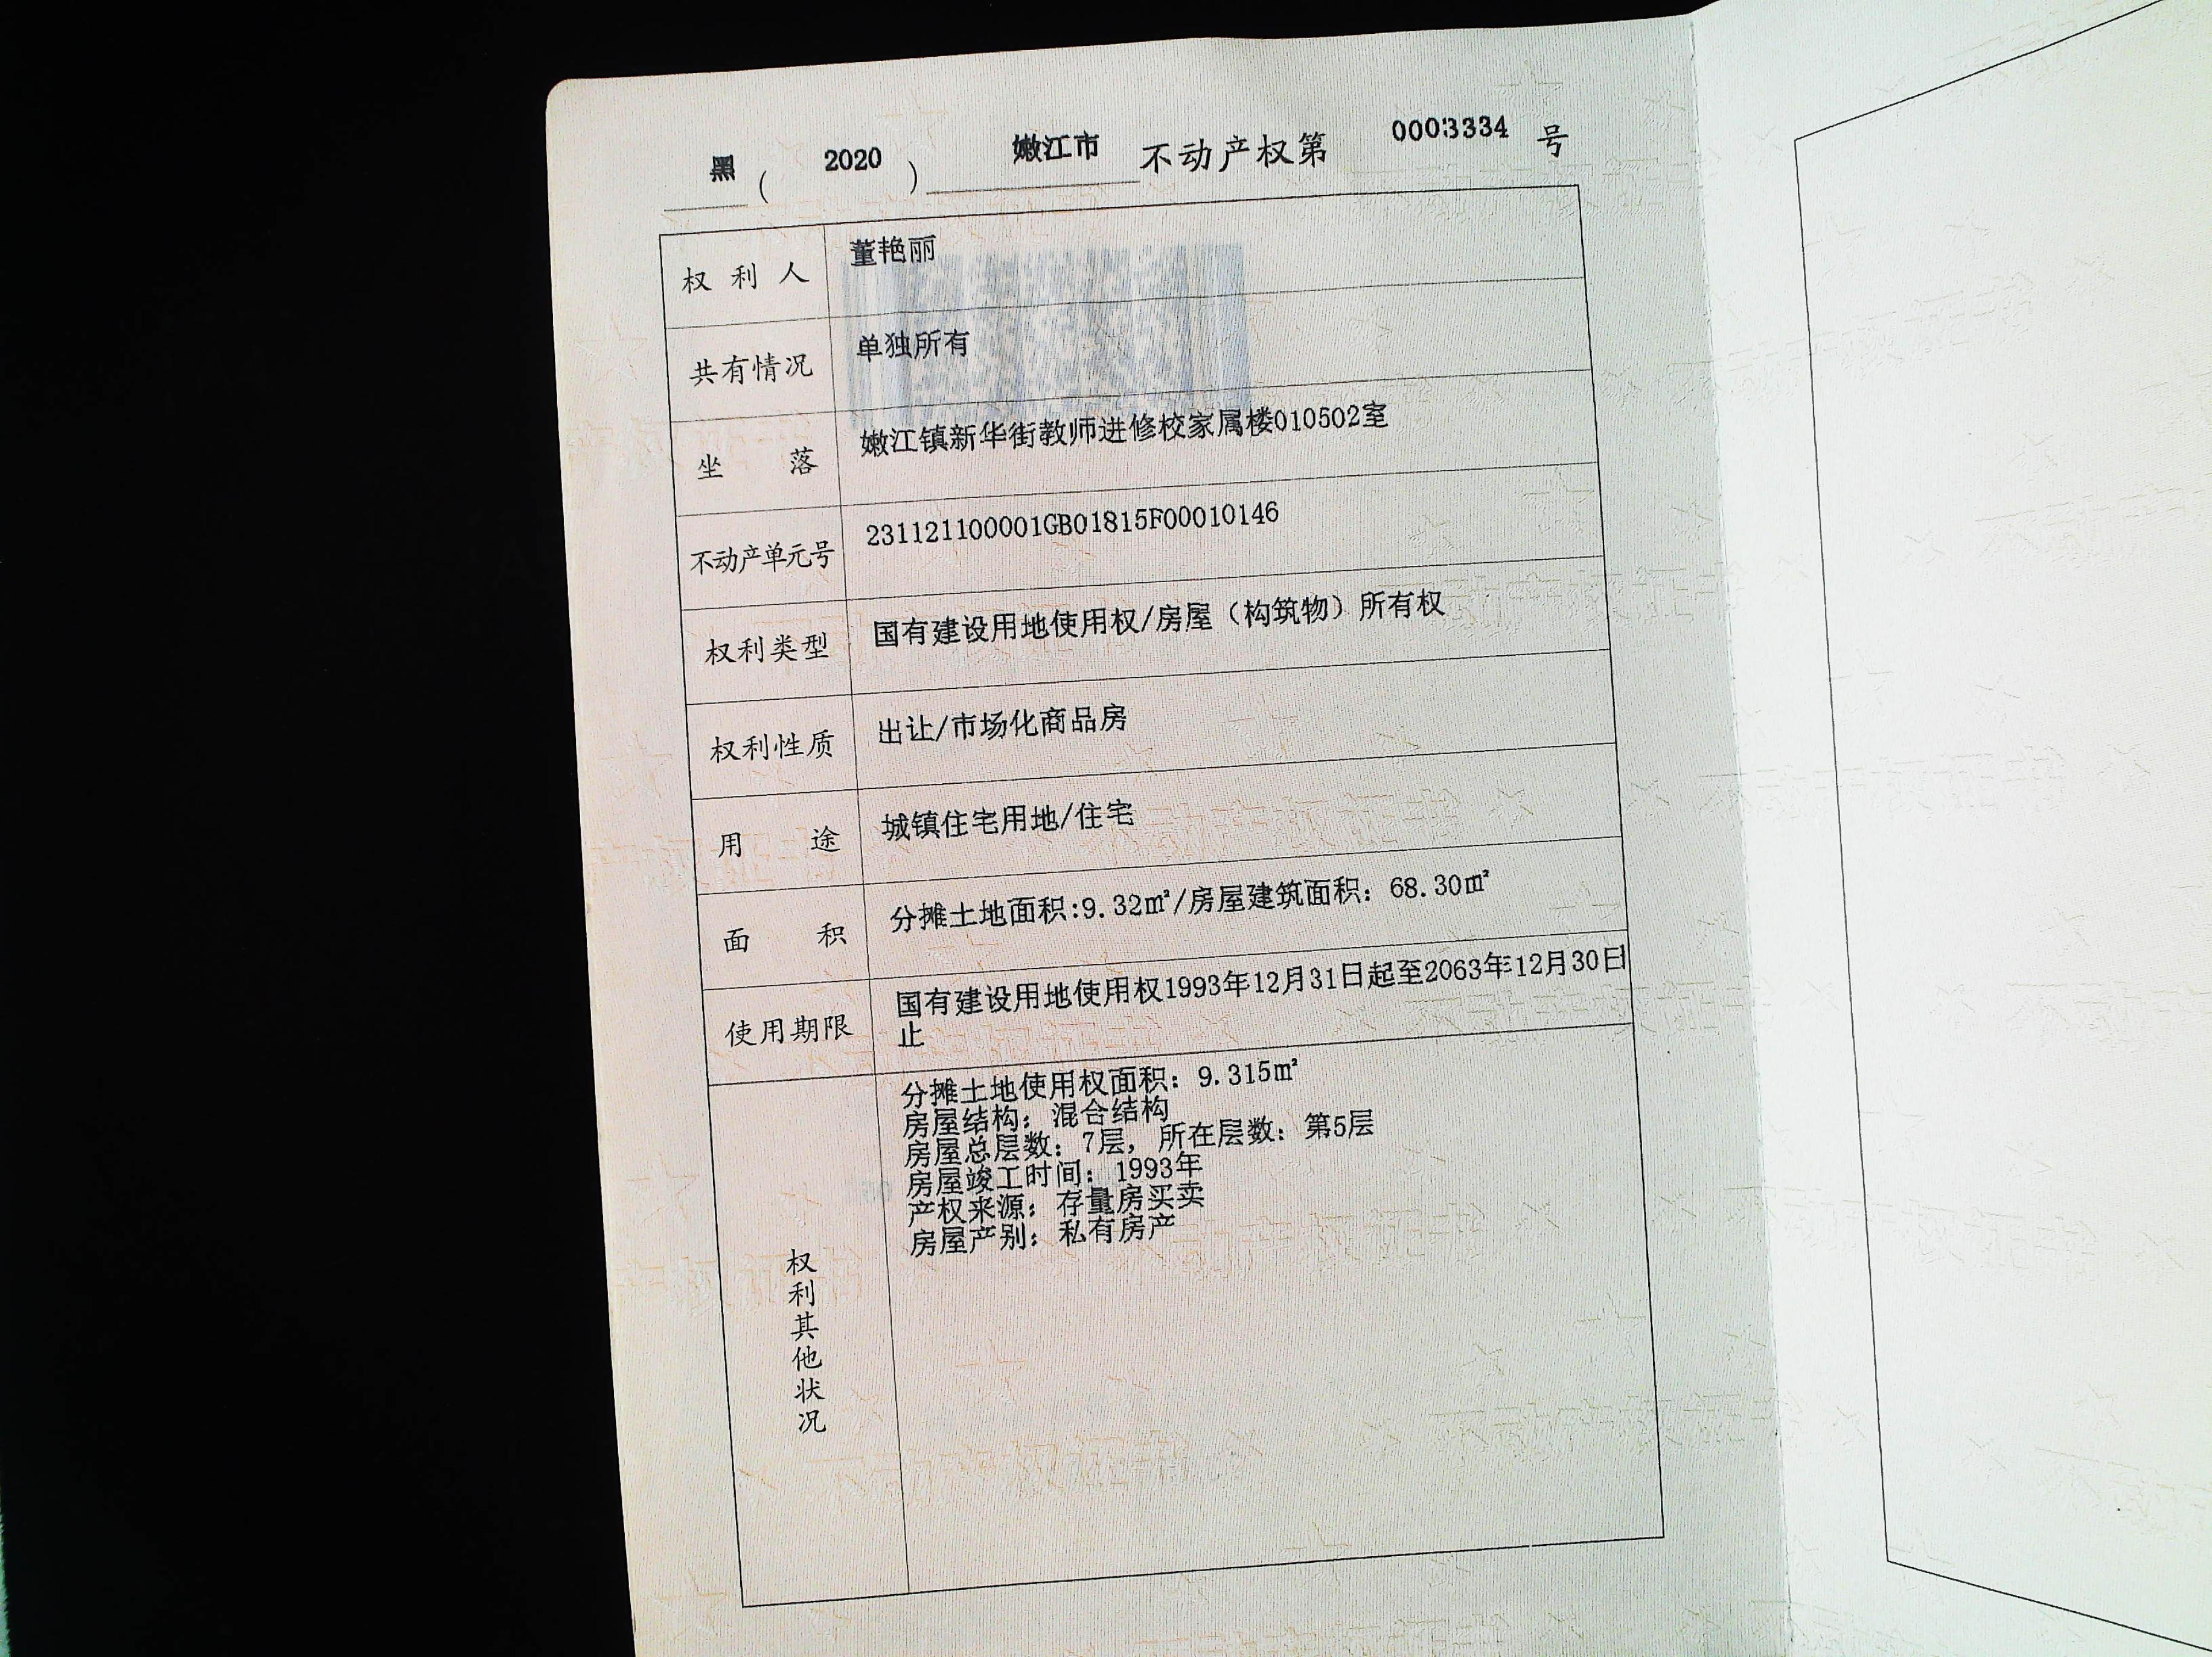 黑 ( 2020 ) 嫩江市 不动产权第 0003334 号
权利人 董艳丽
共有情况 单独所有
坐落 嫩江镇新华街教师进修校家属楼010502室
不动产单元号 231121100001GB01815F00010146
权利类型 国有建设用地使用权/房屋（构筑物）所有权
权利性质 出让/市场化商品房
用途 城镇住宅用地/住宅
面积 分摊土地面积:9.32㎡/房屋建筑面积：68.30㎡
使用期限 国有建设用地使用权1993年12月31日起至2063年12月30日
止
权利其他状况
分摊土地使用权面积：9.315㎡
房屋结构：混合结构
房屋总层数：7层，所在层数：第5层
房屋竣工时间：1993年
产权来源：存量房买卖
房屋产别：私有房产